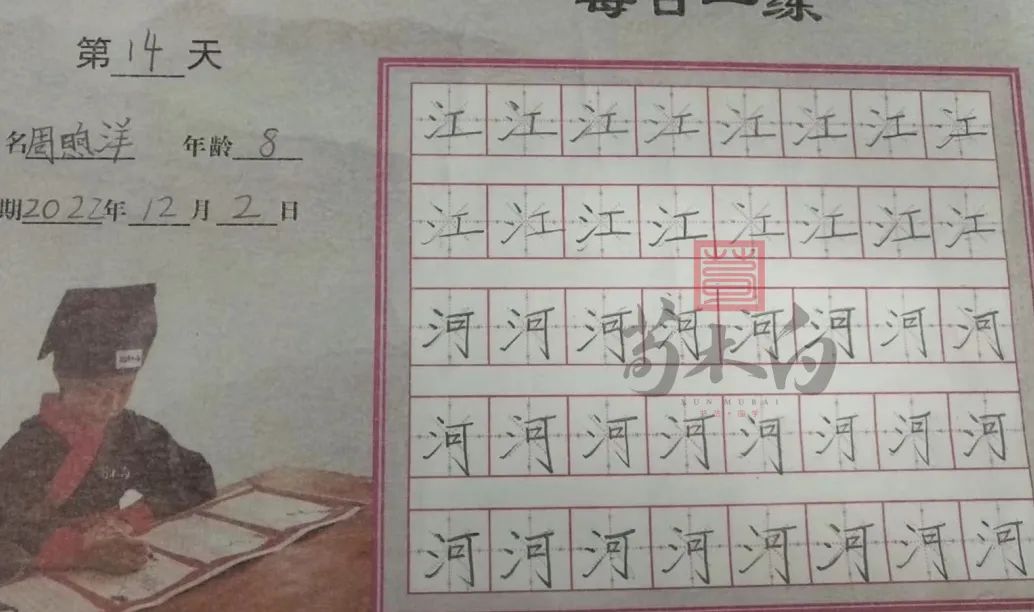 每日一练
第14天
名周煦洋 年龄8
期2022年12月2日
江江江江江江江江
江江江江江江江江
河河河河河河河河
荀木白
XUN MUBAI
书法·国学
河河河河河河河河
河河河河河河河河